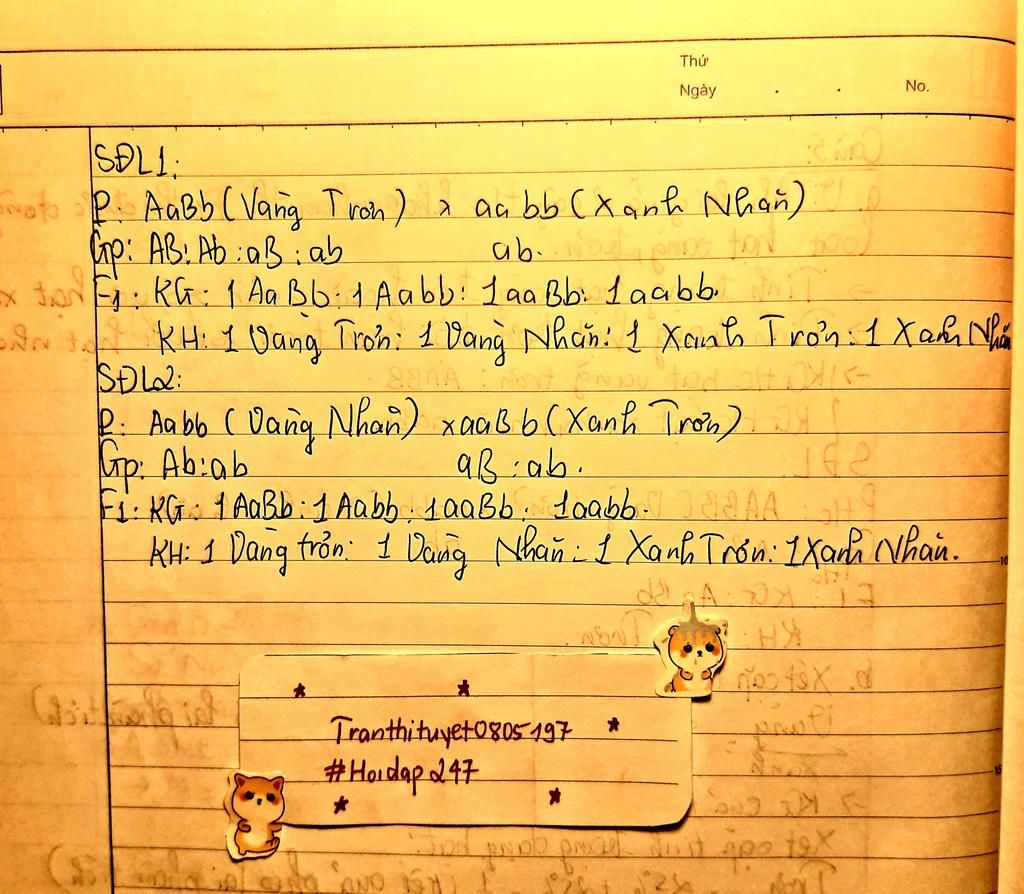 Thứ
Ngày . . No.
SĐL1:
P: AaBb (Vàng Trơn) x aabb (Xanh Nhăn)
Gp: AB:Ab:aB:ab ab.
F1: KG: 1AaBb: 1Aabb: 1aaBb: 1aabb.
KH: 1 Vàng Trơn: 1 Vàng Nhăn: 1 Xanh Trơn: 1 Xanh Nhăn
SĐL2:
P: Aabb (Vàng Nhăn) x aaBb (Xanh Trơn)
Gp: Ab:ab aB:ab.
F1: KG: 1AaBb: 1Aabb: 1aaBb: 1aabb.
KH: 1 Vàng trơn: 1 Vàng Nhăn: 1 Xanh Trơn: 1 Xanh Nhăn.
Tranthituyet0805197
#Hoidap247